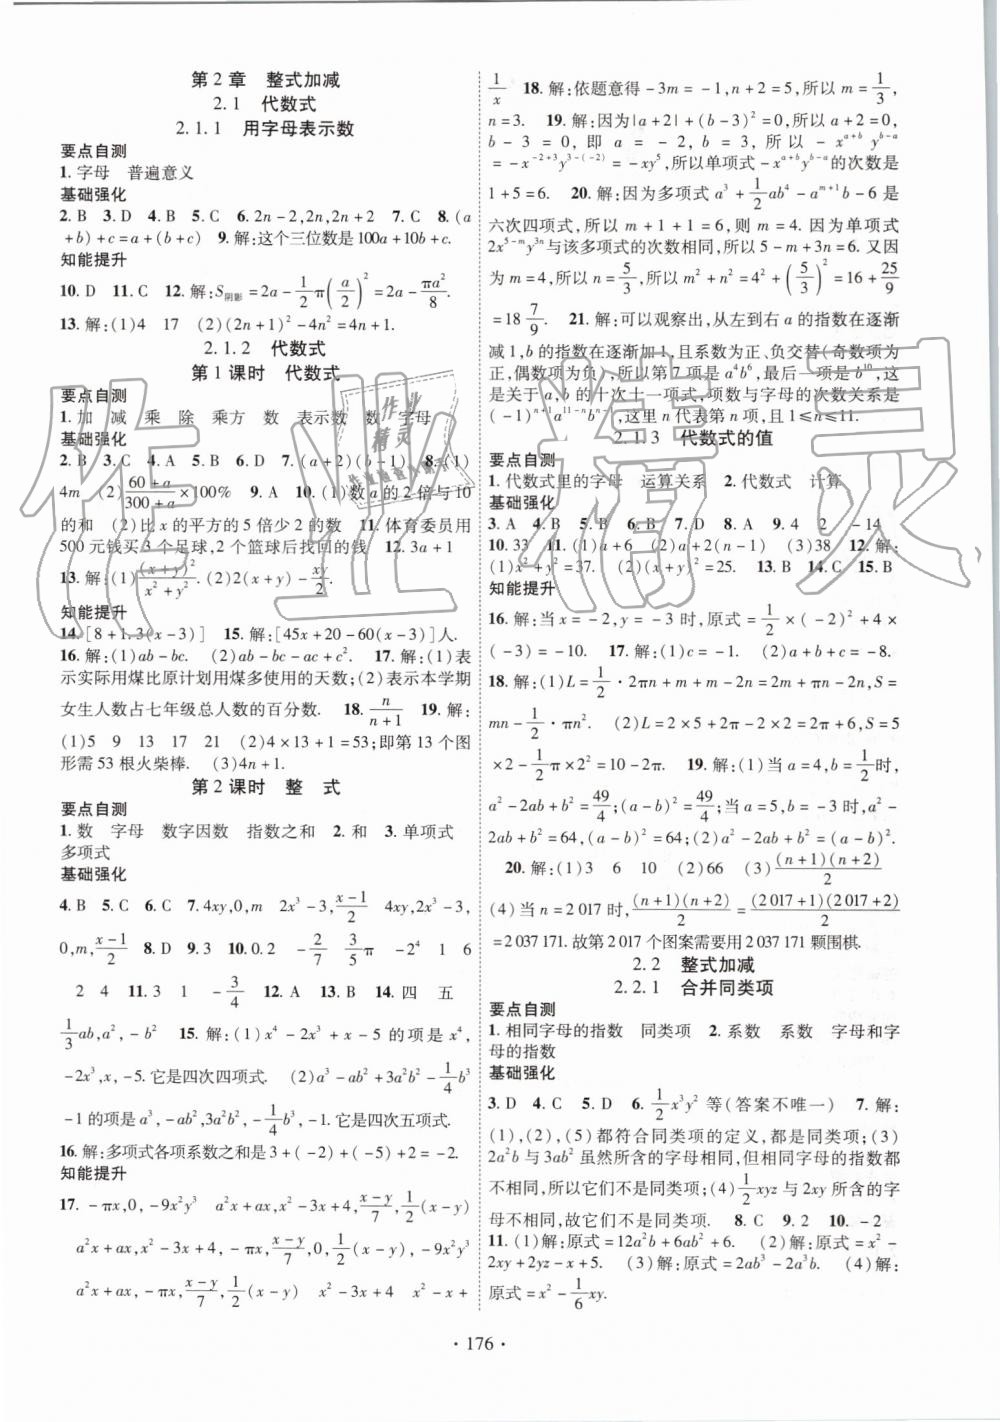 第2章 整式加减
2.1 代数式
2.1.1 用字母表示数
要点自测
1.字母 普遍意义
基础强化
2.B 3.D 4.B 5.C 6.2n-2,2n,2n+2 7.C 8.(a
+b)+c=a+(b+c) 9.解:这个三位数是100a+10b+c.
知能提升
10.D 11.C 12.解:S阴影=2a-1/2π(a/2)²=2a-πa²/8.
13.解:(1)4 17 (2)(2n+1)²-4n²=4n+1.
2.1.2 代数式
第1课时 代数式
要点自测
1.加 减 乘 除 乘方 数 表示数 数 字母
基础强化
2.B 3.C 4.A 5.B 6.D 7.(a+2)(b-1) 8.(1)
4m (2)(60+a)/(300+a)×100% 9.A 10.(1)数a的2倍与10
的和 (2)比x的平方的5倍少2的数 11.体育委员用
500元钱买3个足球,2个篮球后找回的钱 12.3a+1
13.解:(1)(x+y)²/(x²+y²).(2)2(x+y)-xy/2.
知能提升
14.[8+1.3(x-3)] 15.解:[45x+20-60(x-3)]人.
16.解:(1)ab-bc. (2)ab-bc-ac+c². 17.解:(1)表
示实际用煤比原计划用煤多使用的天数;(2)表示本学期
女生人数占七年级总人数的百分数. 18.n/(n+1) 19.解:
(1)5 9 13 17 21 (2)4×13+1=53;即第13个图
形需53根火柴棒. (3)4n+1.
第2课时 整 式
要点自测
1.数 字母 数字因数 指数之和 2.和 3.单项式
多项式
基础强化
4.B 5.C 6.C 7.4xy,0,m 2x³-3,(x-1)/2 4xy,2x³-3,
0,m,(x-1)/2 8.D 9.3 10.0.2 -2/7 3/5π -2⁴ 1 6
2 4 11.3 1 -3/4 12.A 13.B 14.四 五
1/3ab,a²,-b² 15.解:(1)x⁴-2x³+x-5的项是x⁴,
-2x³,x,-5.它是四次四项式. (2)a³-ab²+3a²b²-1/4b³
-1的项是a³,-ab²,3a²b²,-1/4b³,-1.它是四次五项式.
16.解:多项式各项系数之和是3+(-2)+(-5)+2=-2.
知能提升
17.-πx,0,-9x²y³ a²x+ax,x²-3x+4,(x-y)/7,1/2(x-y)
a²x+ax,x²-3x+4,-πx,(x-y)/7,0,1/2(x-y),-9x²y³
a²x+ax,-πx,(x-y)/7,1/2(x-y) x²-3x+4 x²-x+
1/x 18.解:依题意得-3m=-1,n+2=5,所以m=1/3,
n=3. 19.解:因为|a+2|+(b-3)²=0,所以a+2=0,
b-3=0,即a=-2,b=3,所以-x^(a+b)y^(b-a)
=-x^(-2+3)y^(3-(-2))=-xy⁵,所以单项式-x^(a+b)y^(b-a)的次数是
1+5=6. 20.解:因为多项式a³+1/2ab⁴-a^(m+1)b-6是
六次四项式,所以m+1+1=6,则m=4.因为单项式
2x^(5-m)y^(3n)与该多项式的次数相同,所以5-m+3n=6.又因
为m=4,所以n=5/3,所以m²+n²=4²+(5/3)²=16+25/9
=18 7/9. 21.解:可以观察出,从左到右a的指数在逐渐
减1,b的指数在逐渐加1,且系数为正、负交替(奇数项为
正,偶数项为负),所以第七项是a⁴b⁶,最后一项是b¹⁰,这
是关于a,b的十次十一项式,项数与字母的次数关系是
(-1)^(n+1)a^(11-n)b^(n-1),这里n代表第n项,且1≤n≤11.
2.1.3 代数式的值
要点自测
1.代数式里的字母 运算关系 2.代数式 计算
基础强化
3.A 4.B 5.B 6.B 7.D 8.A 9.4 2 -14
10.33 11.(1)a+6 (2)a+2(n-1) (3)38 12.解:
(1)x²+y²=37. (2)(x+y)²=25. 13.B 14.C 15.B
知能提升
16.解:当x=-2,y=-3时,原式=1/2×(-2)²+4×
(-3)=-10. 17.解:(1)c=-1. (2)a+b+c=-8.
18.解:(1)L=1/2·2πn+m+m-2n=πn+2m-2n,S=
mn-1/2·πn². (2)L=2×5+2π-2×2=2π+6,S=5
×2-1/2π×2²=10-2π. 19.解:(1)当a=4,b=1/2时,
a²-2ab+b²=49/4;(a-b)²=49/4;当a=5,b=-3时,a²-
2ab+b²=64,(a-b)²=64;(2)a²-2ab+b²=(a-b)².
20.解:(1)3 6 10 (2)66 (3)(n+1)(n+2)/2
(4)当n=2 017时,(n+1)(n+2)/2=(2 017+1)(2 017+2)/2
=2 037 171.故第2 017个图案需要用2 037 171颗围棋.
2.2 整式加减
2.2.1 合并同类项
要点自测
1.相同字母的指数 同类项 2.系数 系数 字母和字
母的指数
基础强化
3.D 4.C 5.D 6.1/2x³y²等(答案不唯一) 7.解:
(1),(2),(5)都符合同类项的定义,都是同类项;(3)
2a²b与3ab²虽然所含的字母相同,但相同字母的指数都
不相同,所以它们不是同类项;(4)1/2xyz与2xy所含的字
母不相同,故它们不是同类项. 8.C 9.2 10.-2
11.(1)解:原式=12a²b+6ab²+6. (2)解:原式=x²-
2xy+2yz-x+5. (3)解:原式=2ab³-2a³b. (4)解:
原式=x²-1/6xy.
·176·
作业精灵